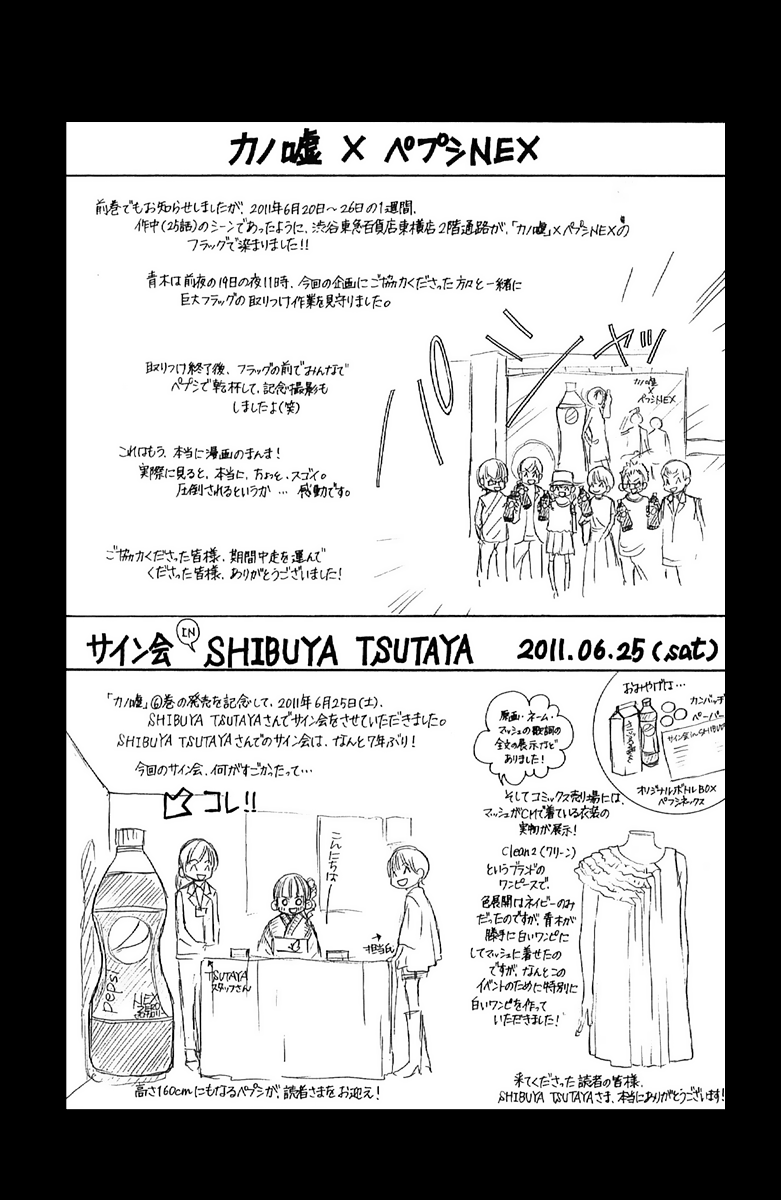 カノ嘘 × ペプシNEX
前巻でもお知らせしましたが、2011年6月20日～26日の1週間、
作中(25話)のシーンであったように、渋谷東急百貨店東横店2階通路が、「カノ嘘」×ペプシNEXの
フラッグで染まりました!!
青木は前夜の19日の夜11時、今回の企画にご協力くださった方々と一緒に
巨大フラッグの取りつけ作業を見守りました。
取りつけ終了後、フラッグの前でみんなで
ペプシで乾杯して、記念撮影も
しましたよ(笑)
これはもう、本当に漫画のまんま!
実際に見ると、本当に、ちょっと、スゴイ。
圧倒されるというか… 感動です。
ご協力くださった皆様、期間中足を運んで
くださった皆様、ありがとうございました!
シャッ
カノ嘘
×
ペプシNEX
サイン会 IN SHIBUYA TSUTAYA 2011.06.25(sat)
「カノ嘘」⑥巻の発売を記念して、2011年6月25日(土)、
SHIBUYA TSUTAYAさんでサイン会をさせていただきました。
SHIBUYA TSUTAYAさんでのサイン会は、なんと7年ぶり!
今回のサイン会、何がすごかったって…
コレ!!
こんにちはー
→担当氏
TSUTAYA
スタッフさん
pepsi
NEX
高さ160cmにもなるペプシが、読者さまをお迎え!
原画・ネーム・
マッシュの歌詞の
全文の展示など
ありました!
おみやげは…
カンバッヂ
ペーパー
オリジナルボトルBOX
ペプシネックス
そしてコミックス売り場には、
マッシュがCMで着ている衣装の
実物が展示!
Clean2(クリーン)
というブランドの
ワンピースで、
色展開はネイビーのみ
だったのですが、青木が
勝手に白いワンピに
してマッシュに着せたの
ですが、なんとこの
イベントのために特別に
白いワンピを作って
いただきました!
来てくださった読者の皆様、
SHIBUYA TSUTAYAさま、本当にありがとうございます!